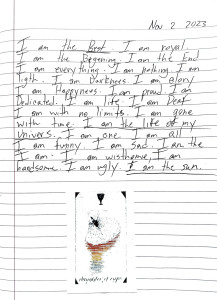 Nov 2 2023
I am the Best. I am royal
I am the Begening. I am the End
I am everything. I am nothing. I am
light. I am Darkness I am Glory
I am Happyness. I am proud I am
Dedicated. I am life I am Deaf
I am with no limits. I am gone
with time. I am the life of my
Univers. I am one. I am all
I am funny. I am Sad. I am the
I am. I am wisthome, I am
handsome. I am ugly. I am the sun.